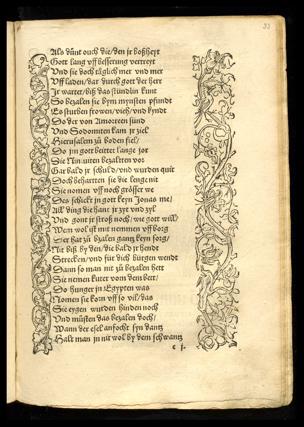 33
Als dunt ouch die/den jr boßheyt
Gott lang vff besserung vertreyt
Vnd sie doch täglich mer vnd mer
Vff laden/dar durch gott der herr
Je warter/biß das stündlin kunt
So bezalen sie bym mynsten pfundt
Es sturben frowen/vich/vnd kyndt
So der von Amorreen sünd
Vnd Sodomiten kam jr ziel
Hierusalem zu boden fiel/
Do jm gott beittet lange jor
Die Niniuiten bezalten vor
Gar bald jr schuld/vnd wurden quit
Doch beharrten sie die lenge nit
Sie nomen vff noch grösser we
Des schickt jn gott keyn Jonas me/
All ding die hant jr zyt vnd zyl
Vnd gont jr stroß noch/wie gott will/
Wem wol ist mit nemmen vff borg
Der hat zu bzalen gantz keyn sorg/
Nit biß by den/die bald jr hendt
Strecken/vnd für dich bürgen wendt
Dann so man nit zu bezalen hett
Sie nemen kuter vom dem bett/
Do hunger jn Egypten was
Nomen sie korn vff so vil/das
Sie eygen wurden hinden noch
Vnd musten das bezalen doch/
Wann der esel anfocht syn dantz
Halt man jn nit wol by dem schwantz
e j.